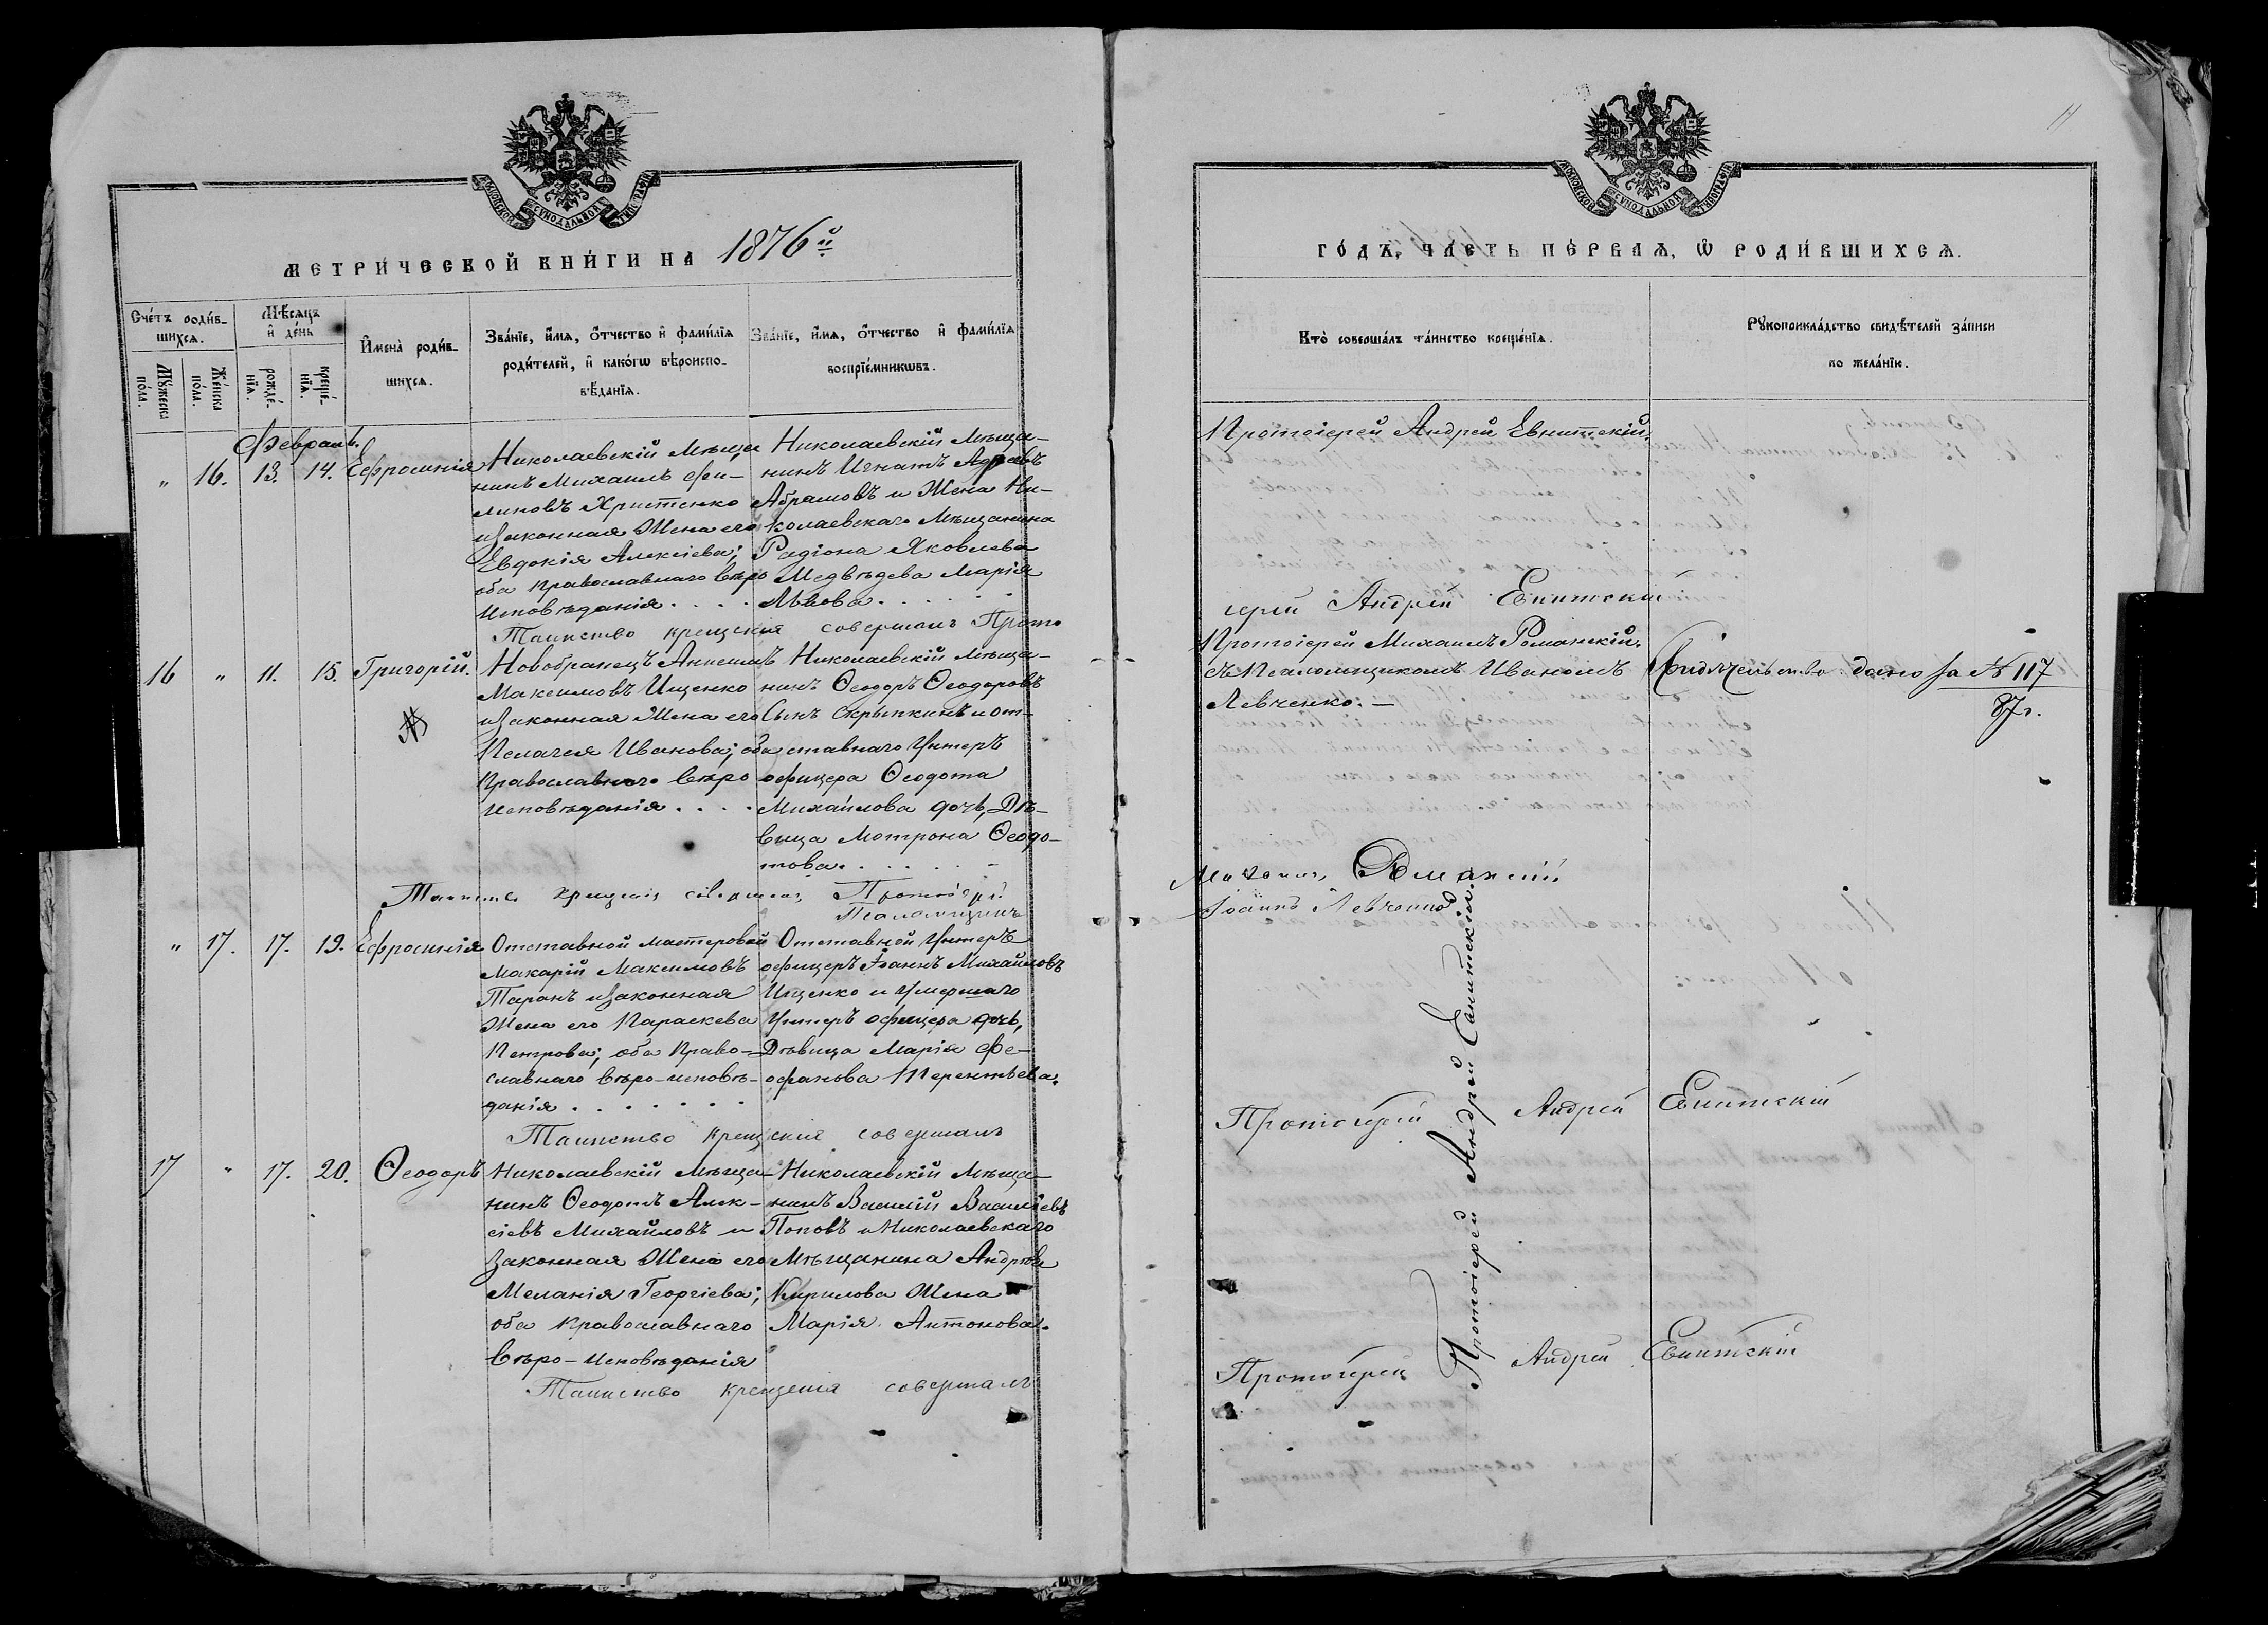 МОСКОВСКОЙ СѴНОДАЛЬНОЙ ТИПОГРАФІИ
МЕТРИ́ЧЕСКОЙ КНИ́ГИ НА 1876й
Сче́тъ роди́в-
шихсѧ.
Мѣ́сѧцъ
и҆ де́нь
Мꙋ́жеска
по́ла.
Же́нска
по́ла.
рожде́-
нїѧ.
креще́-
нїѧ.
И҆мена̀ роди́в-
шихсѧ.
Зва́нїе, и҆́мѧ, ѻ҆́тчество и҆ фами́лїѧ
роди́телей, и҆ како́гѡ вѣроиспо-
вѣ́данїѧ.
Зва́нїе, и҆́мѧ, ѻ҆́тчество и҆ фами́лїѧ
воспрїе́мникѡвъ.
Февраль.
" 16. 13. 14. Ефросинія
Николаевскій Мѣща
нинъ Михаилъ Фи-
липовъ Христенко
изаконная Жена его
Евдокія Алексіева;
оба Православнаго вѣро
исповѣданія . . . .
Николаевскій Мѣща-
нинъ Игнатъ
Абрамовъ и Жена Ни-
колаевскаго Мѣщанина
Радіона Яковлева
Медвѣдева Марія
Львова . . . . . .
Таинство крещенія совершалъ Прото
16 " 11. 15. Григорій.
Новобранецъ
Максимовъ Ищенко
изаконная Жена его
Пелагея Иванова; оба
Православнаго вѣро
исповѣданія . . . .
Николаевскій Мѣща-
нинъ Ѳеодоръ Ѳеодоровъ
Сынъ Скрыпкинъ и от-
ставнаго Унтеръ
офицера Ѳеодота
Михайлова дочь, Дѣ-
вица Мотрона Ѳеодо-
това. . . . . .
Таинство крещенія совершалъ Протоіерей
Псаломщикъ
" 17. 17. 19. Ефросинія
Отставной мастеровой
Макарій Максимовъ
Таранъ изаконная
Жена его Параскева
Петрова; оба Право-
славнаго вѣро-исповѣ-
данія . . . . . . .
Отставной Унтеръ
офицеръ Іоаннъ Михайловъ
Ищенко и умершаго
Унтеръ офицера дочь,
Дѣвица Марія Фе-
офанова Терентьева.
Таинство крещенія совершалъ
17 " 17. 20. Ѳеодоръ
Николаевскій Мѣща-
нинъ Ѳеодотъ Алек-
сіевъ Михайловъ и
Законная Жена его
Меланія Георгіева;
оба Православнаго
Вѣро-исповѣданія
Николаевскій Мѣща-
нинъ Василій Василіевъ
Поповъ и Николаевскаго
Мѣщанина Андрѣя
Кирилова Жена
Марія Антонова.
Таинство крещенія совершалъ
11
МОСКОВСКОЙ СѴНОДАЛЬНОЙ ТИПОГРАФІИ
ГО́ДЪ, ЧА́СТЬ ПЕ́РВАѦ, Ѡ҆ РОДИ́ВШИХСѦ.
Кто̀ соверша́лъ та́инство креще́нїѧ.
Рꙋкоприкла́дство свидѣ́телей за́писи
по жела́нїю.
Протоіерей Андрей Евнитскій.
іерей Андрей Евнитскій
Протоіерей Михаилъ Романскій,
съ Псаломщикомъ Иваномъ
Левченко. —
Свидѣтельство дано за № 117
87г.
Михаилъ Романскій
Іоаннъ Левченко
Протоіерей Андрей Евнитскій
Протоіерей Андрей Евнитскій
Протоіерей Андрей Евнитскій.